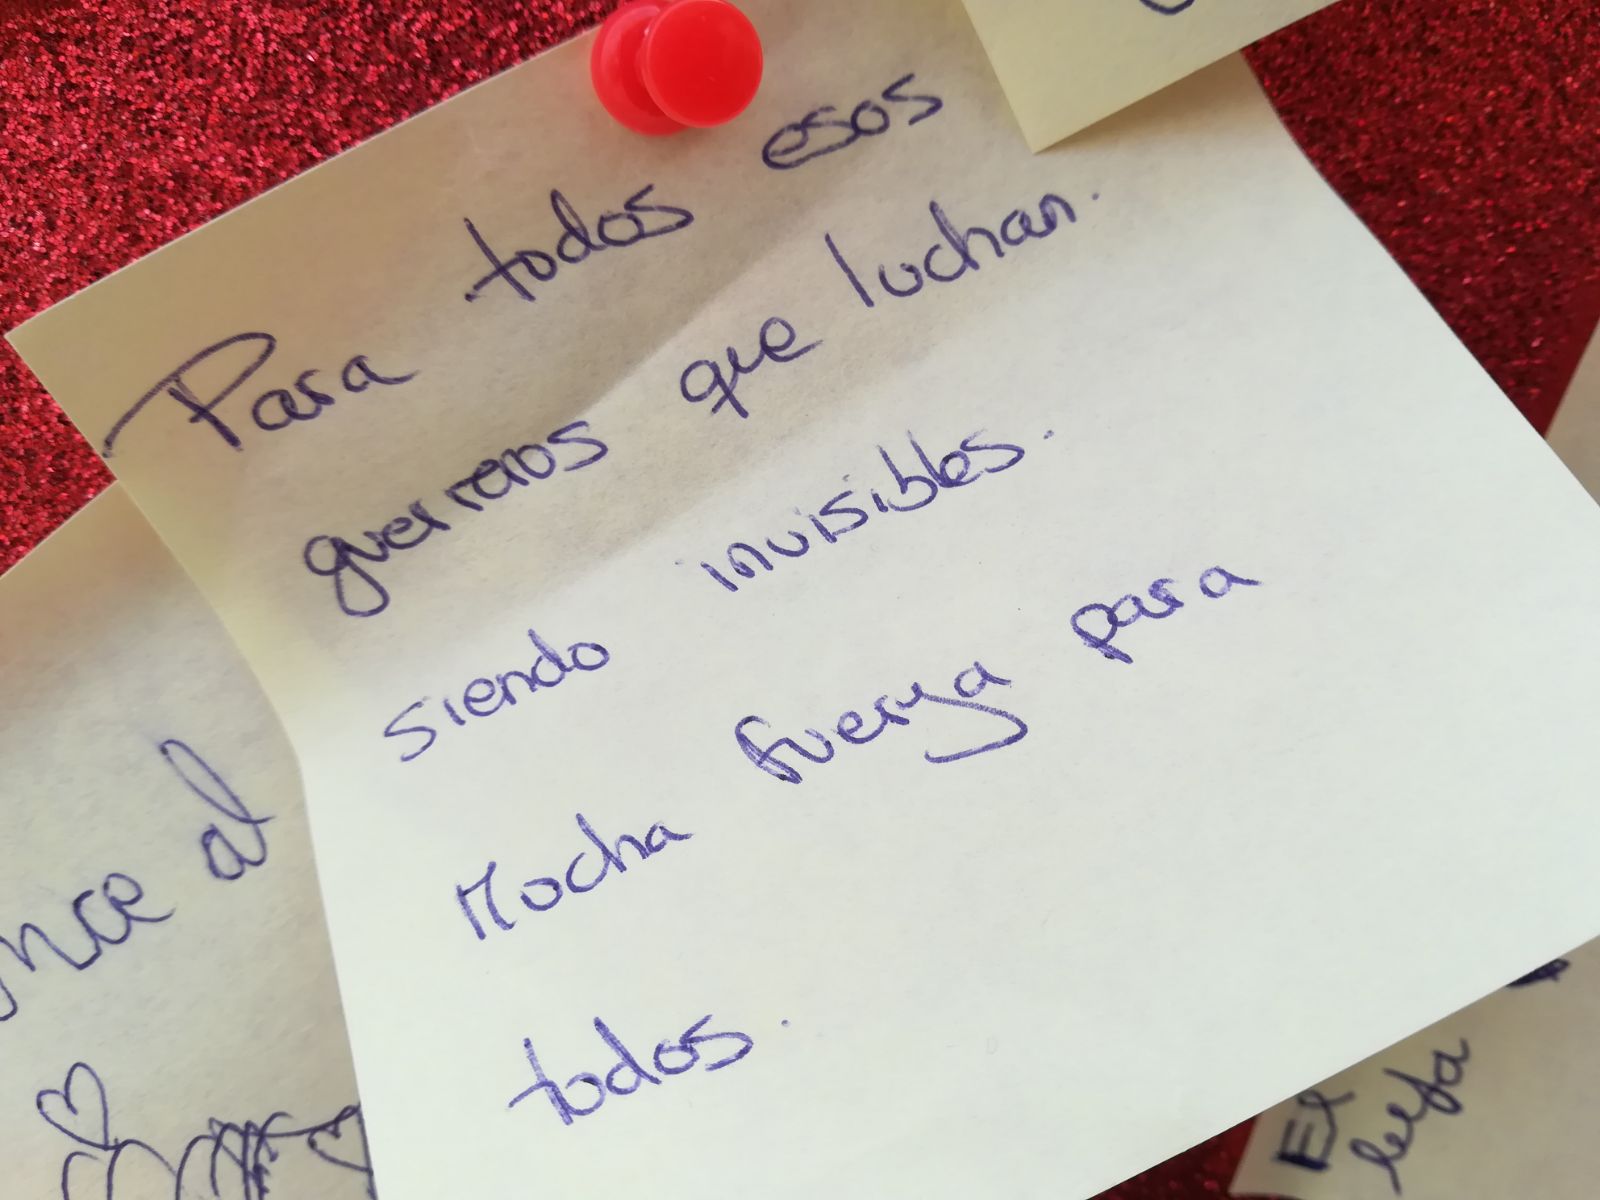 Para todos esos
guerreros que luchan.
siendo invisibles.
Mucha fuerza para
todos.
al
El